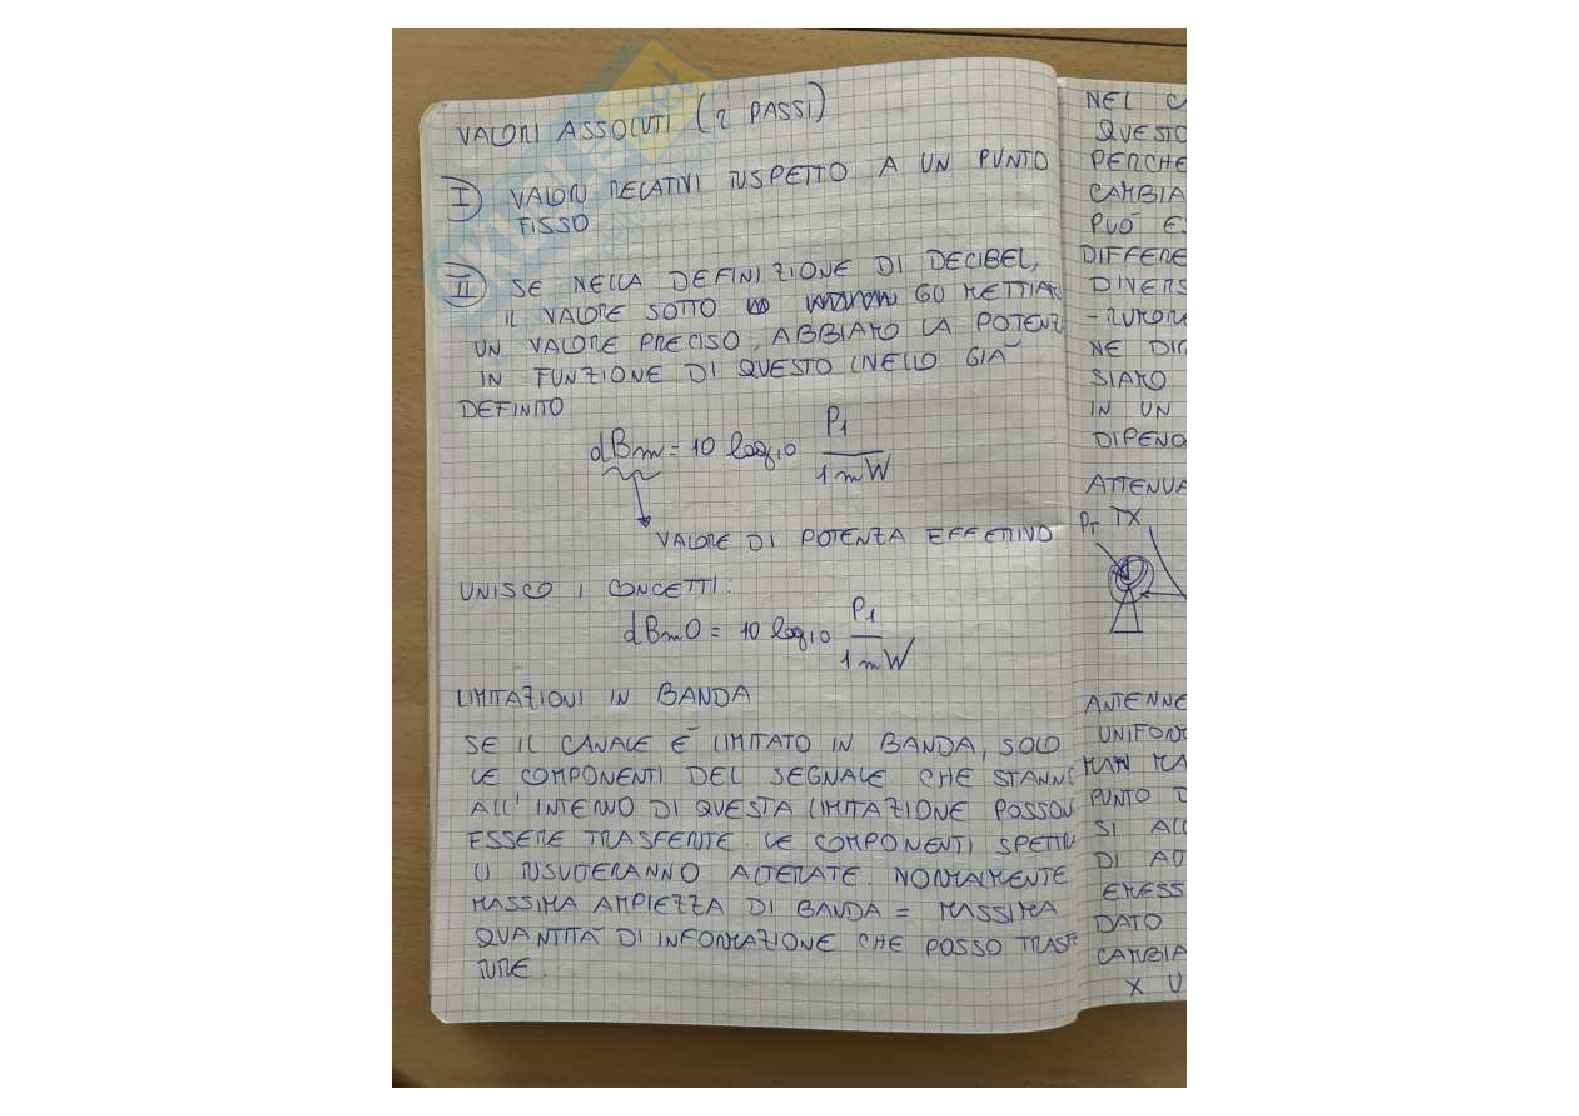 VALORI ASSOLUTI (2 PASSI)
I VALORI RELATIVI RISPETTO A UN PUNTO
FISSO
II SE NELLA DEFINIZIONE DI DECIBEL,
IL VALORE SOTTO GO METTIAMO
UN VALORE PRECISO, ABBIAMO LA POTENZ
IN FUNZIONE DI QUESTO LIVELLO GIÀ
DEFINITO
dBm = 10 log10 P1
1mW
VALORE DI POTENZA EFFETTIVO
UNISCO I CONCETTI:
dBm0 = 10 log10 P1
1mW
LIMITAZIONI IN BANDA
SE IL CANALE È LIMITATO IN BANDA, SOLO
LE COMPONENTI DEL SEGNALE CHE STANNO
ALL'INTERNO DI QUESTA LIMITAZIONE POSSON
ESSERE TRASFERITE. LE COMPONENTI SPETTR
LI RISULTERANNO ALTERATE. NORMALMENTE
MASSIMA AMPIEZZA DI BANDA = MASSIMA
QUANTITÀ DI INFORMAZIONE CHE POSSO TRASFE
RIRE.
NEL C
QUESTO
PERCHE
CAMBIA
PUÒ E
DIFFERE
DIVERS
-RUMORE
NE DI
SIAMO
IN UN
DIPEND
ATTENUA
PT TX
ANTENNE
UNIFOR
MAN MA
PUNTO D
SI ALL
DI
EMESS
DATO
CAMBIA
X U